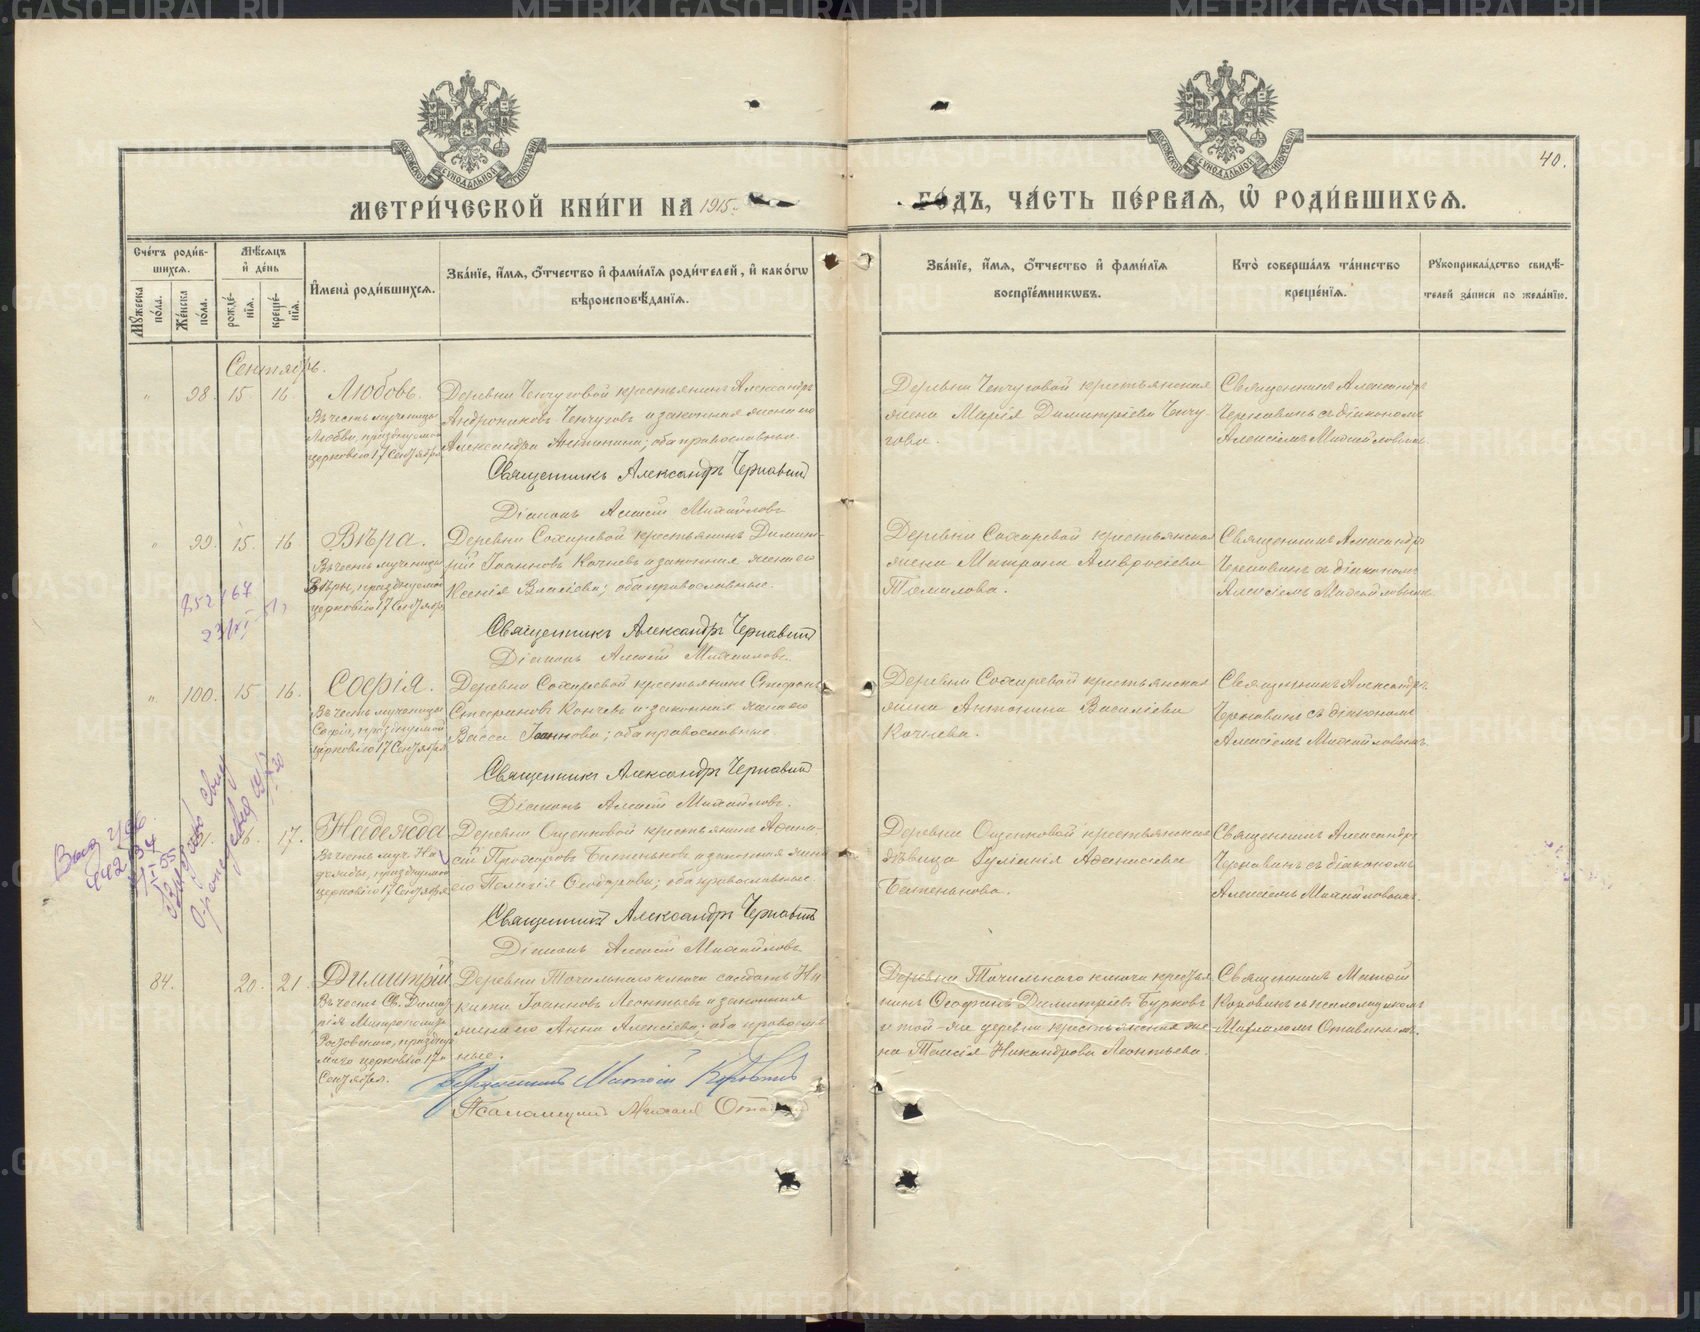 40.
МЕТРИ́ЧЕСКОЙ КНИ́ГИ НА 1915
ГО́ДЪ, ЧА́СТЬ ПЕ́РВАѦ, Ѽ РОДИ́ВШИХСѦ.
Сче́тъ роди́в-
шихсѧ.
Мꙋжеска по́ла.
Же́нска по́ла.
Мѣ́сѧцъ
и҆ де́нь
рожде́нїѧ.
креще́нїѧ.
И҆мена̀ роди́вшихсѧ.
Зва́нїе, и҆́мѧ, ѻ҆́тчество и҆ фами́лїѧ роди́телей, и҆ како́гѡ
вѣроисповѣ́данїѧ.
Зва́нїе, и҆́мѧ, ѻ҆́тчество и҆ фами́лїѧ
воспрїе́мникѡвъ.
Кто̀ соверша́лъ та́инство
креще́нїѧ.
Рꙋкоприкла́дство свидѣ́-
телей за́писи по жела́нїю.
Сентябрь.
98. 15. 16. Любовь.
Въ честь мученицы
Любви, празднуемой
церковію 17 Сентября
Деревни Ченчуговой крестьянинъ Александръ
Андрониковъ Ченчуговъ и законная жена его
Александра Антипина; оба православные.
Священникъ Александръ Чернавинъ
Діаконъ Алексій Михайловъ
Деревни Ченчуговой крестьянская
жена Марія Димитріева Ченчу-
гова.
Священникъ Александръ
Чернавинъ съ діакономъ
Алексіемъ Михайловымъ.
99. 15. 16. Вѣра.
Въ честь мученицы
Вѣры, празднуемой
церковію 17 Сентября
Деревни Сохаревой крестьянинъ Димит-
рій Іоанновъ Кочневъ и законная жена его
Ксенія Власіева; оба православные.
Священникъ Александръ Чернавинъ
Діаконъ Алексій Михайловъ.
Деревни Сохаревой крестьянская
жена Матрона Амвросіева
Томилова.
Священникъ Александръ
Чернавинъ съ діакономъ
Алексіемъ Михайловымъ.
100. 15. 16. Софія.
Въ честь мученицы
Софіи, празднуемой
церковію 17 Сентября
Деревни Сохаревой крестьянинъ Стефанъ
Стефановъ Кочневъ и законная жена его
Васса Іоаннова; оба православные
Священникъ Александръ Чернавинъ
Діаконъ Алексій Михайловъ.
Деревни Сохаревой крестьянская
жена Антонина Василіева
Кочнева.
Священникъ Александръ
Чернавинъ съ діакономъ
Алексіемъ Михайловымъ.
17. Надежда
Въ честь муч. На-
дежды, празднуемой
церковію 17 Сентября
Деревни Ощепковой крестьянинъ Аѳана-
сій Прохоровъ Батеньковъ и законная жена
его Пелагія Ѳеодорова; оба православные.
Священникъ Александръ Чернавинъ
Діаконъ Алексій Михайловъ
Деревни Ощепковой крестьянская
дѣвица Іуліанія Аѳанасіева
Батенькова.
Священникъ Александръ
Чернавинъ съ діакономъ
Алексіемъ Михайловымъ.
84. 20. 21. Димитрій
Въ честь Св. Димит-
рія Митрополита
Ростовскаго, праздну-
емаго церковію 17
Сентября.
Деревни Точильнаго ключа солдатъ Ни-
кита Іоанновъ Леонтьевъ и законная
жена его Анна Алексіева; оба православ-
ные.
Священникъ Матѳій Коровинъ
Псаломщикъ Михаилъ
Деревни Точильнаго ключа крестья-
нинъ Ѳеофанъ Димитріевъ Бурковъ
и той-же деревни крестьянская же-
на Таисія Никандрова Леонтьева.
Священникъ Матѳій
Коровинъ съ псаломщикомъ
Михаиломъ